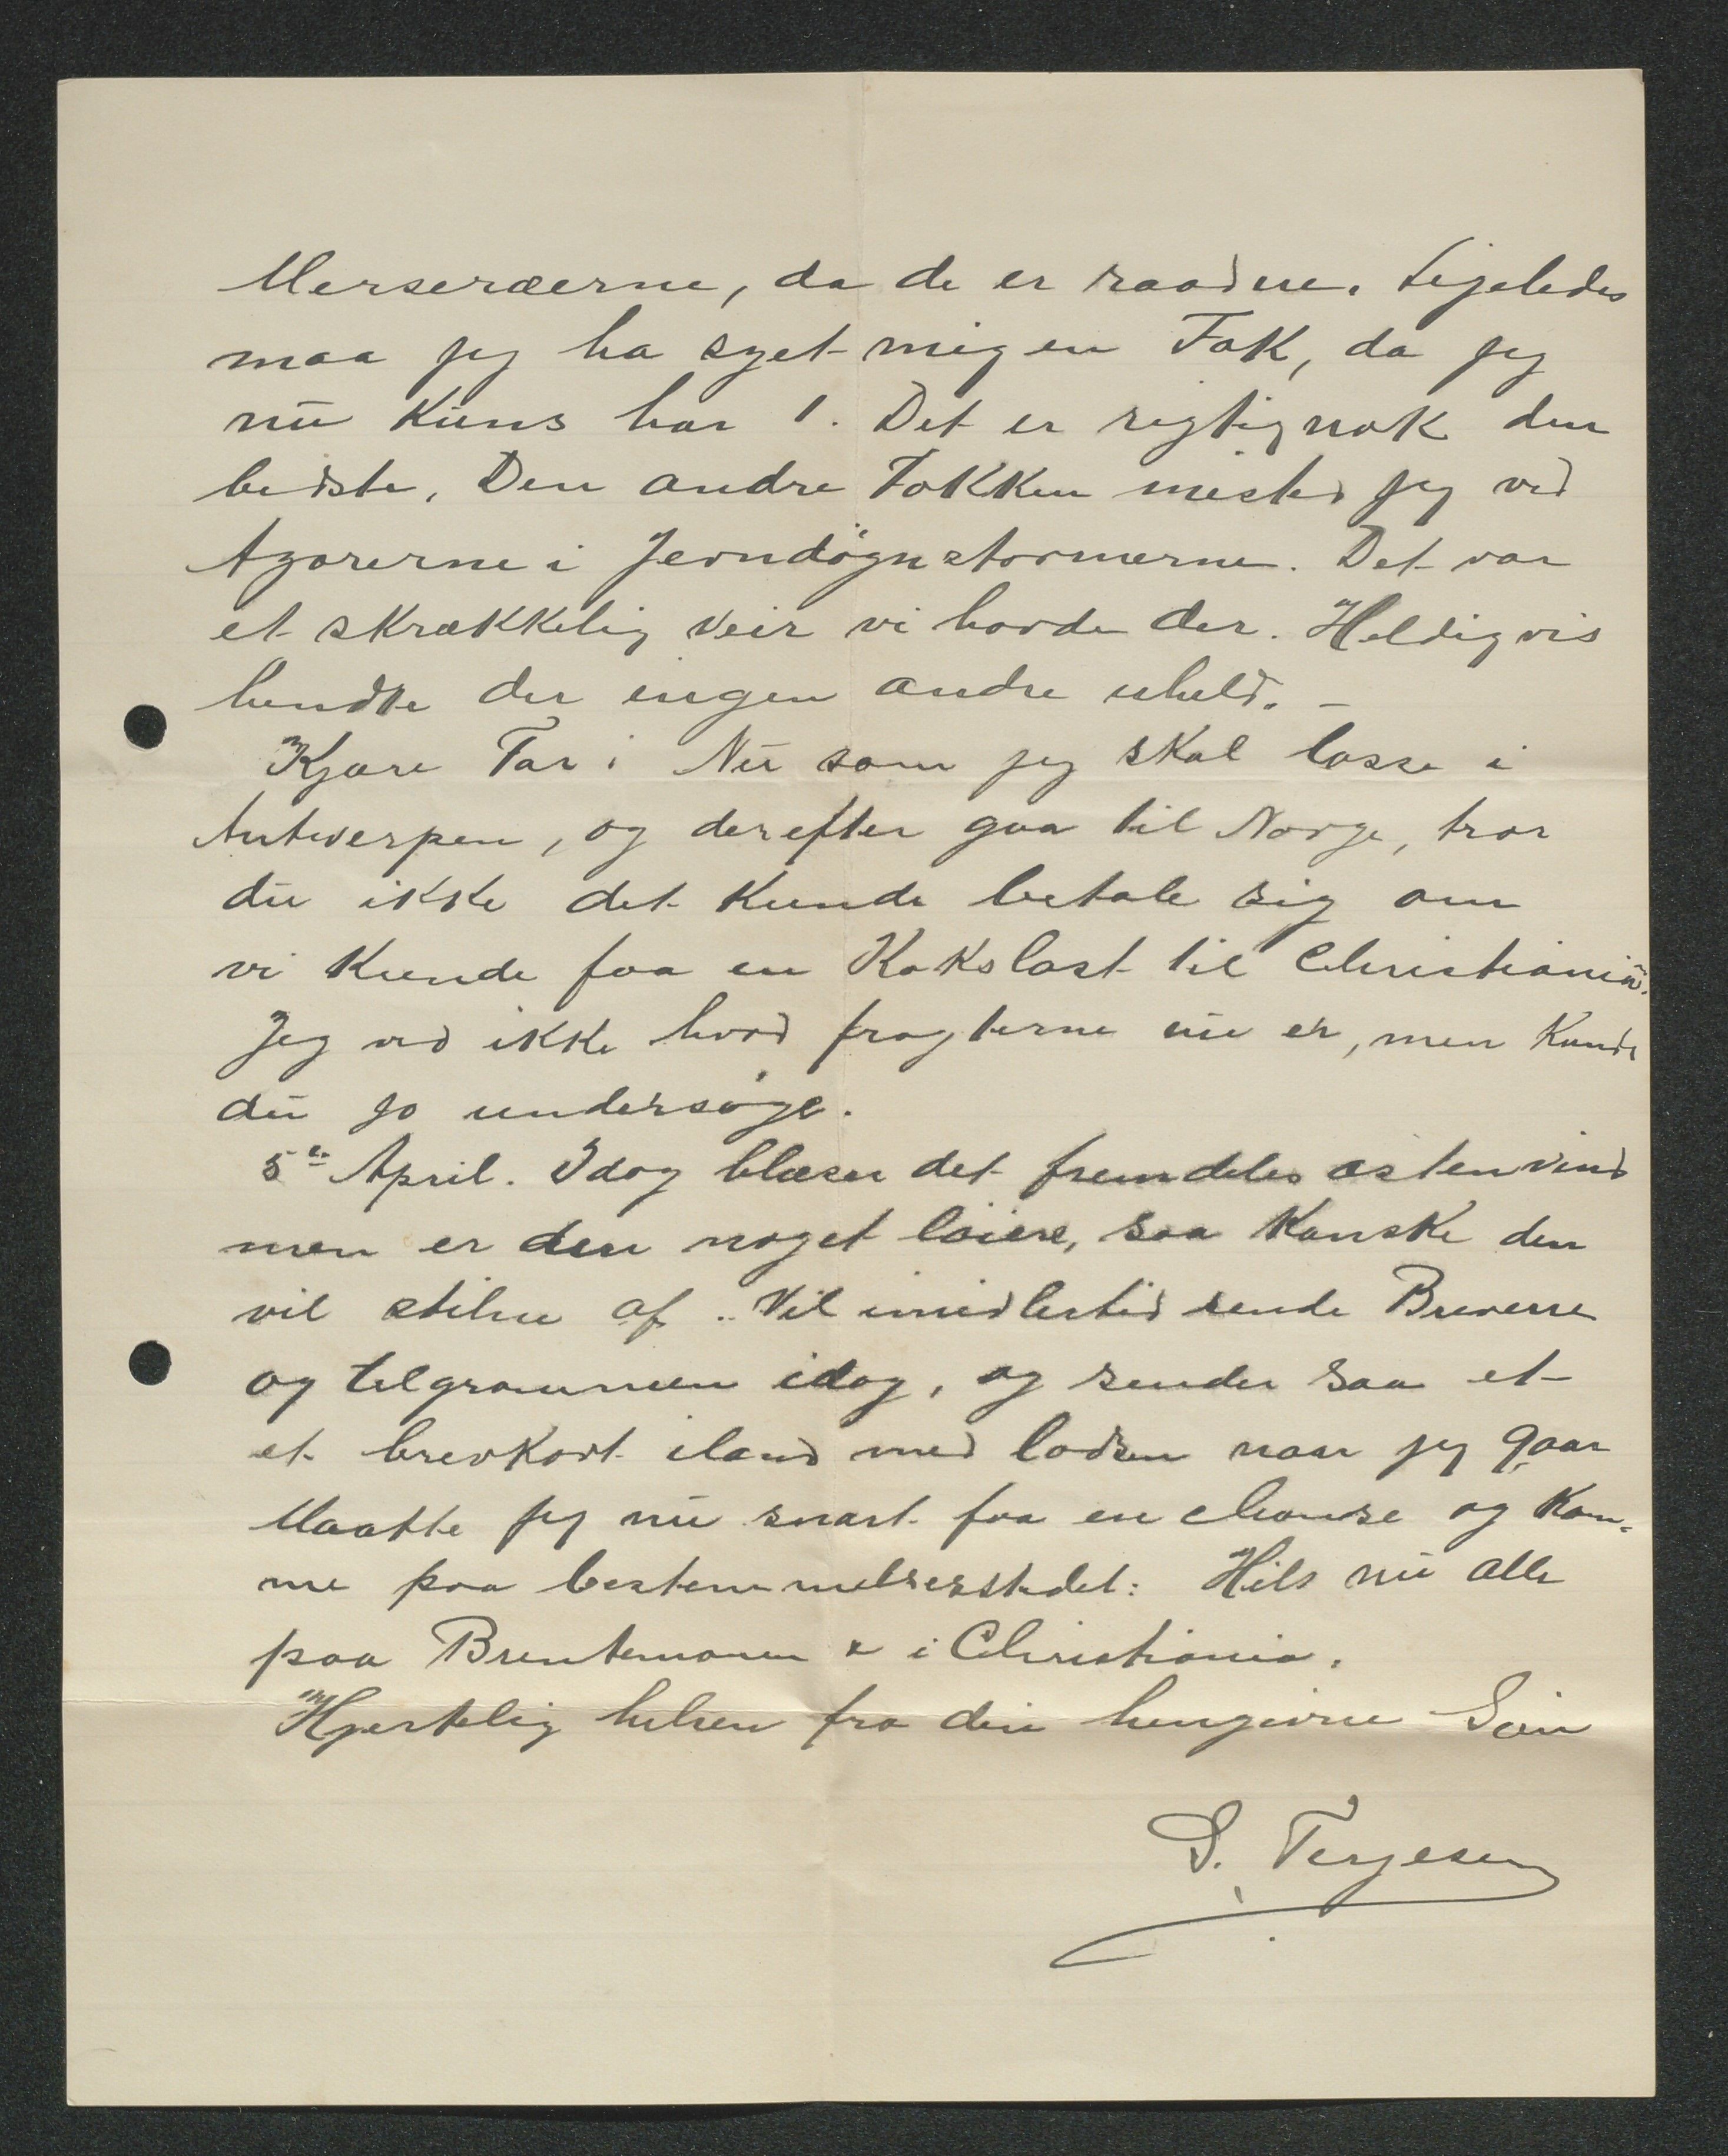 Merseræerne, da de er raadne. Ligeledes
maa jeg ha syet mig en Fok, da jeg
nu kuns har 1. Det er rigtignok den
bedste. Den andre Fokken misted jeg ved
Azorerne i Jevndøgnstormerne. Det var
et skrækkelig veir vi havde der. Heldigvis
hendte der ingen andre uheld. –
Kjære Far! Nu som jeg skal losse i
Antwerpen, og derefter gaa til Norge, tror
du ikke det kunde betale sig om
vi kunde faa en Kokslast til Christiania.
Jeg ved ikke hvad fragterne nu er, men kunde
du jo undersøge.
5te April. Idag blæser det fremdeles østenvind
men er den noget løiere, saa kanske den
vil stilne af. Vil imidlertid sende Breverne
og telgrammen idag, og sender saa et
et brevkort iland med lodsen naar jeg gaar
Maatte jeg nu snart faa en chanse og kom-
me paa bestemmelsesstedet: Hils nu alle
paa Bruntemoren & i Christiania.
Hjertelig hilsen fra din hengivne Søn
S. Terjesen